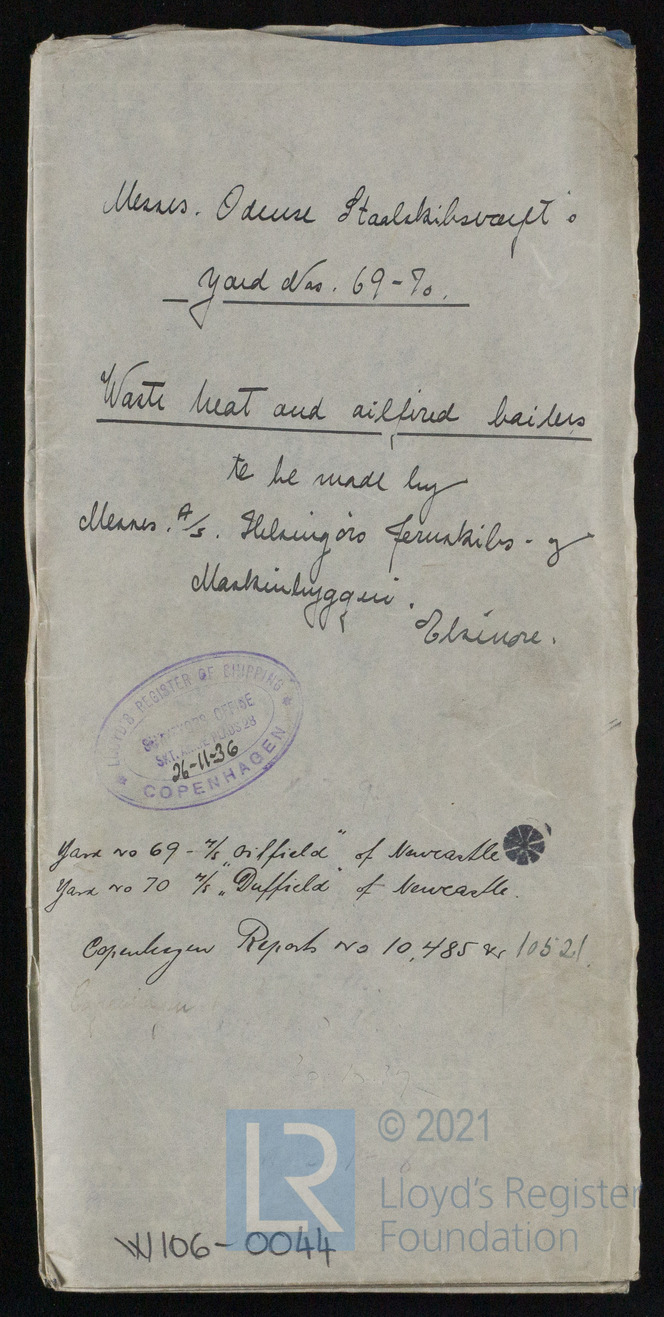 Messrs. Odense Staalskibsværft's
Yard Nos. 69-70.
Waste heat and oilfired boilers
to be made by
Messrs. A/S. Helsingörs Jernskibs- og
Maskinbyggeri.
Elsinore.
LLOYD'S REGISTER OF SHIPPING
SURVEYORS OFFICE
SKT. ANNÆ PLADS 28
26-11-36
COPENHAGEN
Yard no 69 - M/S "Oilfield" of Newcastle
Yard no 70 M/S "Duffield" of Newcastle.
Copenhagen Reports no 10,485 & 10521.
© 2021
LR
Lloyd's Register
Foundation
W106-0044